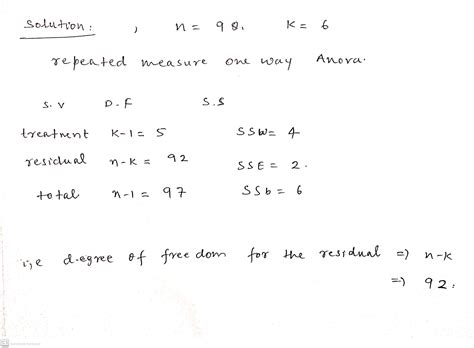 Solution: , n = 98. k = 6
repeated measure one way Anova.
S.V D.F S.S
treatment K-1 = 5 SSW = 4
residual n-k = 92 SSE = 2.
total n-1 = 97 SSb = 6
i,e degree of freedom for the residual => n-k
=> 92.